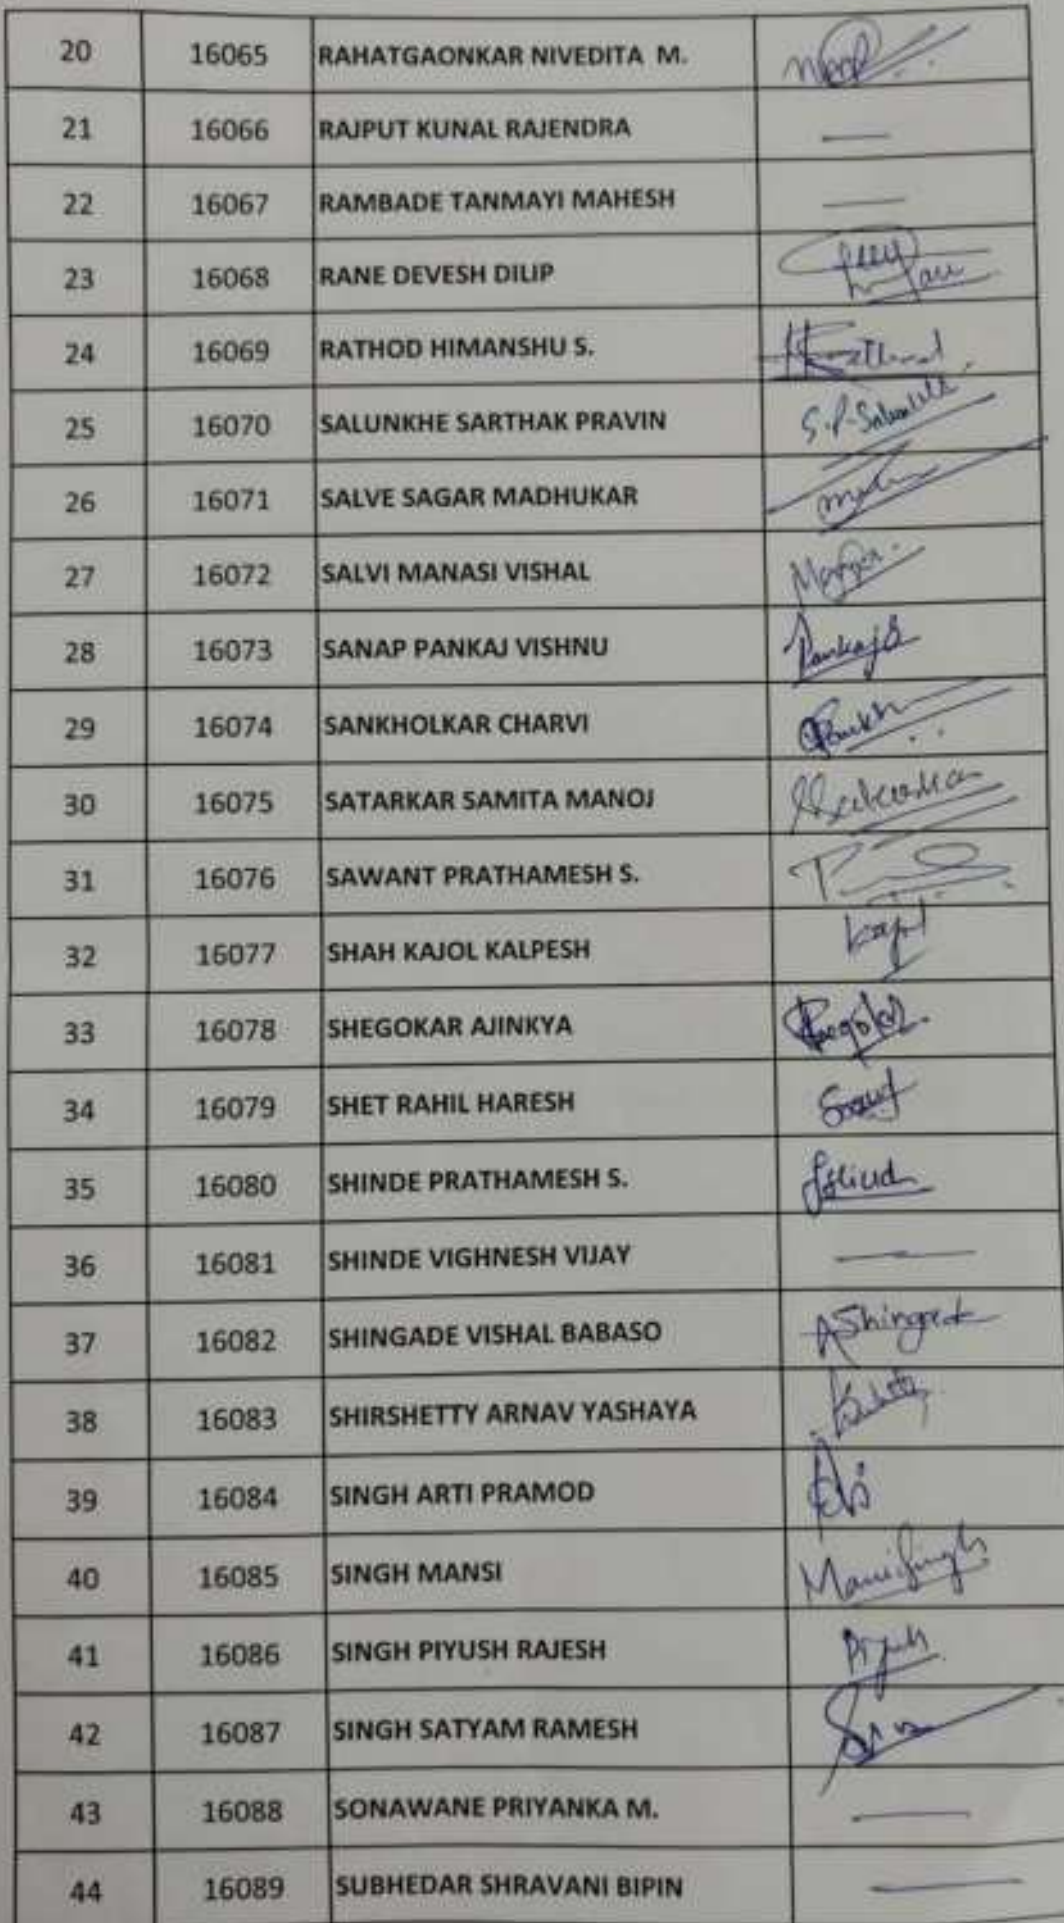 20 16065 RAHATGAONKAR NIVEDITA M.
21 16066 RAJPUT KUNAL RAJENDRA —
22 16067 RAMBADE TANMAYI MAHESH —
23 16068 RANE DEVESH DILIP
24 16069 RATHOD HIMANSHU S.
25 16070 SALUNKHE SARTHAK PRAVIN
26 16071 SALVE SAGAR MADHUKAR
27 16072 SALVI MANASI VISHAL
28 16073 SANAP PANKAJ VISHNU PankajS
29 16074 SANKHOLKAR CHARVI
30 16075 SATARKAR SAMITA MANOJ
31 16076 SAWANT PRATHAMESH S.
32 16077 SHAH KAJOL KALPESH
33 16078 SHEGOKAR AJINKYA
34 16079 SHET RAHIL HARESH
35 16080 SHINDE PRATHAMESH S.
36 16081 SHINDE VIGHNESH VIJAY —
37 16082 SHINGADE VISHAL BABASO
38 16083 SHIRSHETTY ARNAV YASHAYA
39 16084 SINGH ARTI PRAMOD
40 16085 SINGH MANSI
41 16086 SINGH PIYUSH RAJESH
42 16087 SINGH SATYAM RAMESH
43 16088 SONAWANE PRIYANKA M. —
44 16089 SUBHEDAR SHRAVANI BIPIN —